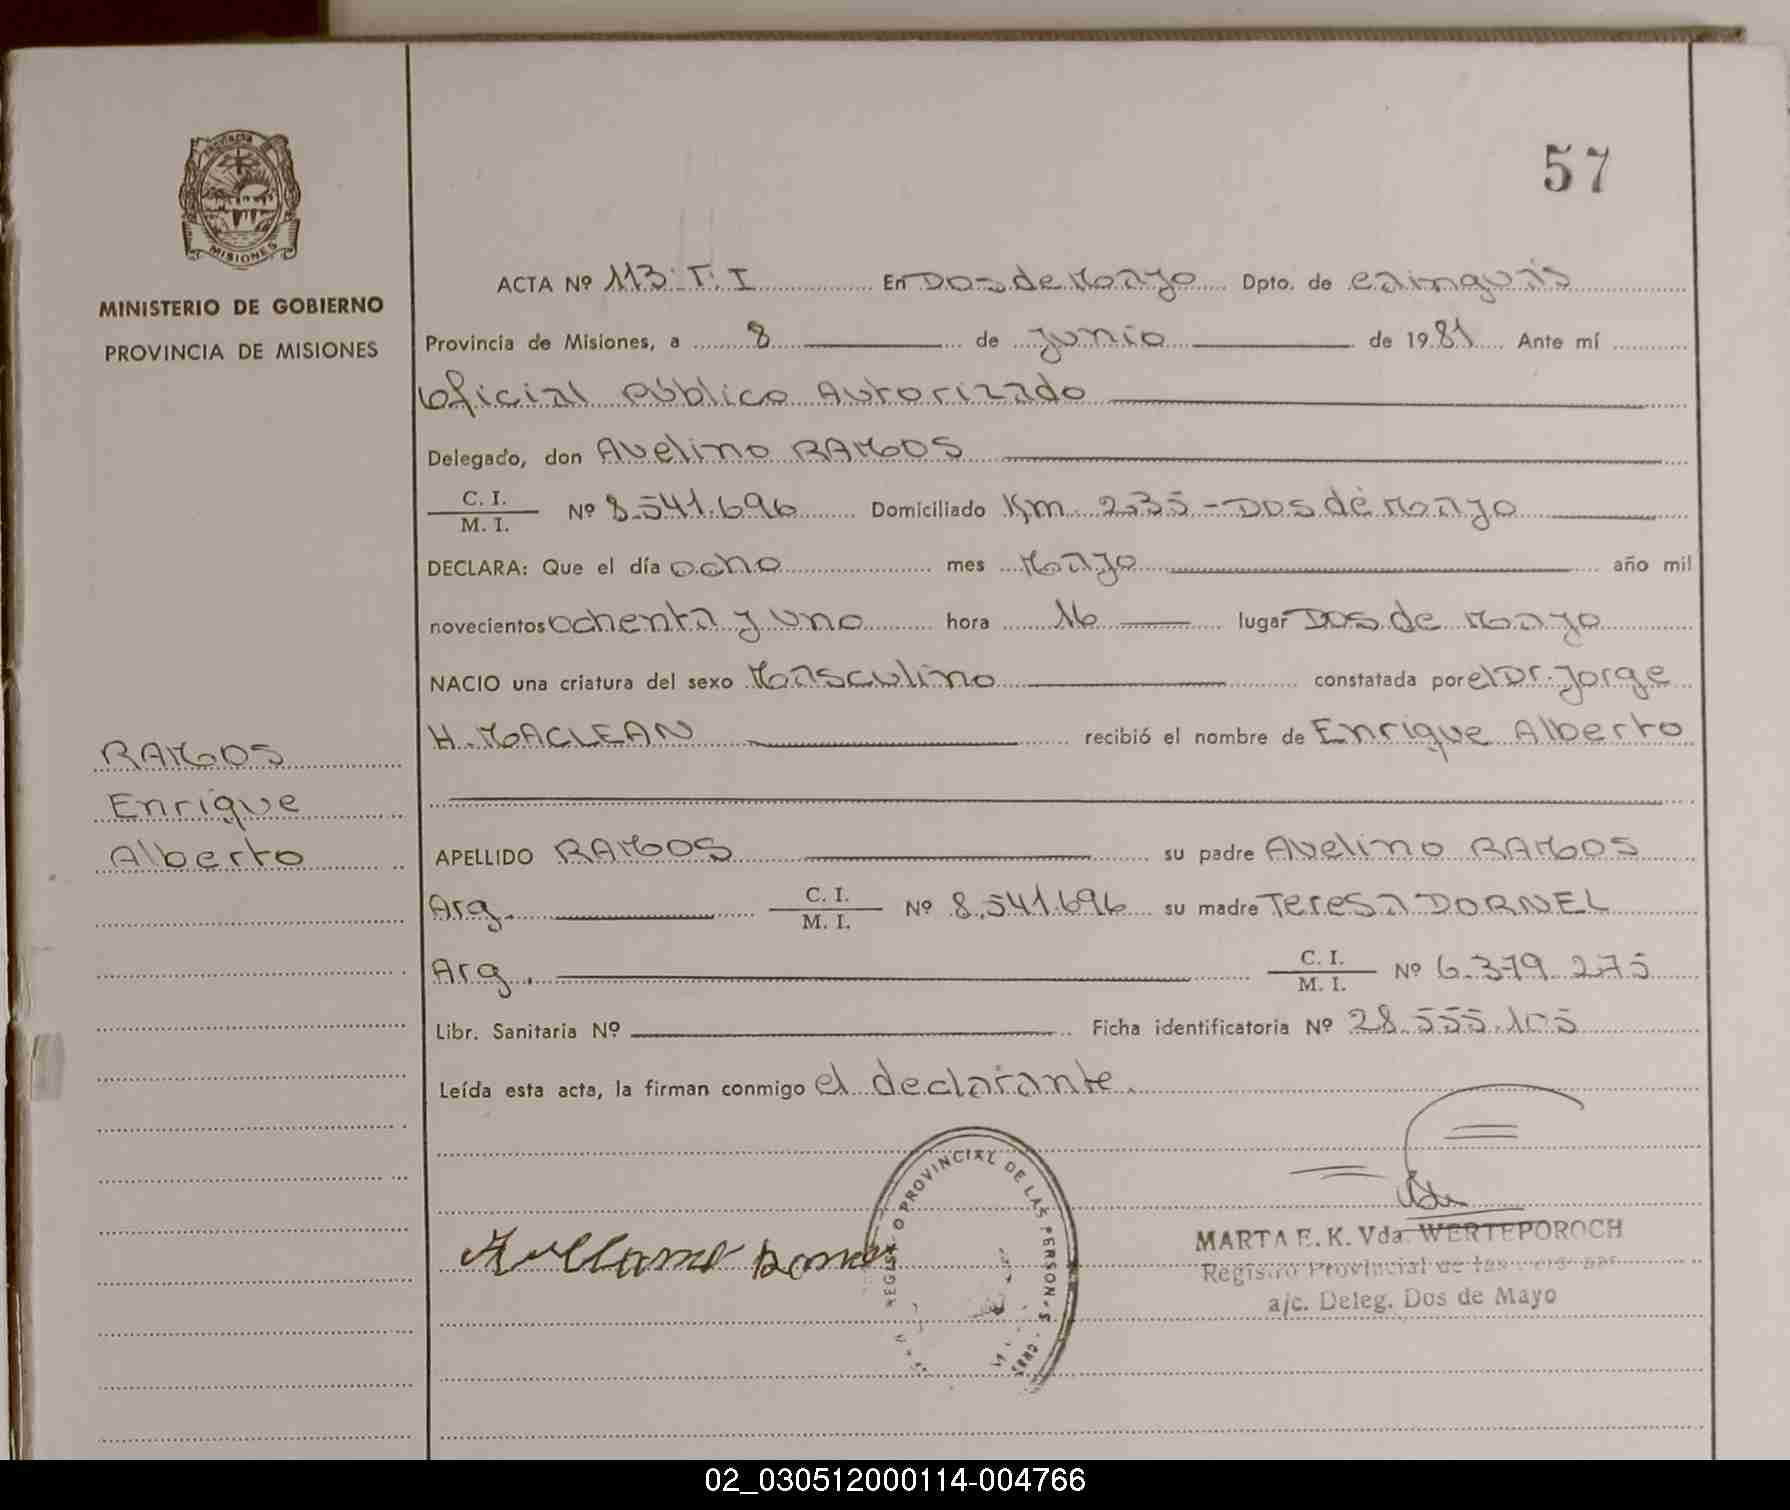 57
Provincia
MISIONES
MINISTERIO DE GOBIERNO
PROVINCIA DE MISIONES
ACTA Nº 113.T.I En Dos de Mayo Dpto. de Cainguás
Provincia de Misiones, a 8 de Junio de 1981 Ante mí
Oficial Público Autorizado
Delegado, don Avelino RAMOS
C. I.
M. I. Nº 8.541.696 Domiciliado Km. 235 - Dos de Mayo
DECLARA: Que el día ocho mes Mayo año mil
novecientos ochenta y uno hora 16 lugar Dos de Mayo
NACIO una criatura del sexo Masculino constatada por el Dr. Jorge
H. MACLEAN recibió el nombre de Enrique Alberto
RAMOS
Enrique
Alberto
APELLIDO RAMOS su padre Avelino RAMOS
Arg. C. I. M. I. Nº 8.541.696 su madre Teresa DORNEL
Arg. C. I. M. I. Nº 6.379.275
Libr. Sanitaria Nº Ficha identificatoria Nº 28.555.105
Leída esta acta, la firman conmigo el declarante.
PROVINCIAL DE LAS PERSON S
MARTA E. K. Vda. WERTEPOROCH
Registro Provincial de las
a/c. Deleg. Dos de Mayo
02_030512000114-004766